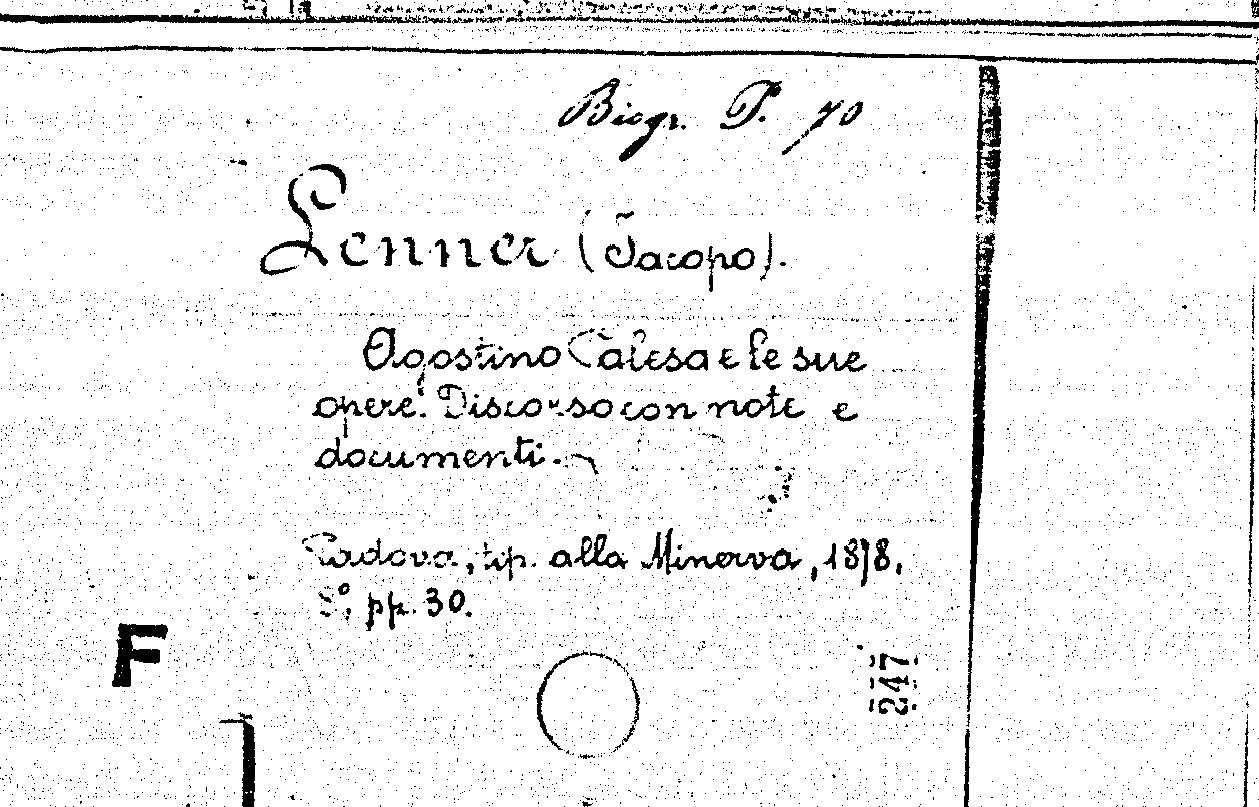 Biogr. P. 70
Lenner (Jacopo).
Agostino Palesa e le sue
opere. Discorso con note e
documenti.
Padova, tip. alla Minerva, 1878.
8°, pp. 30.
F
247